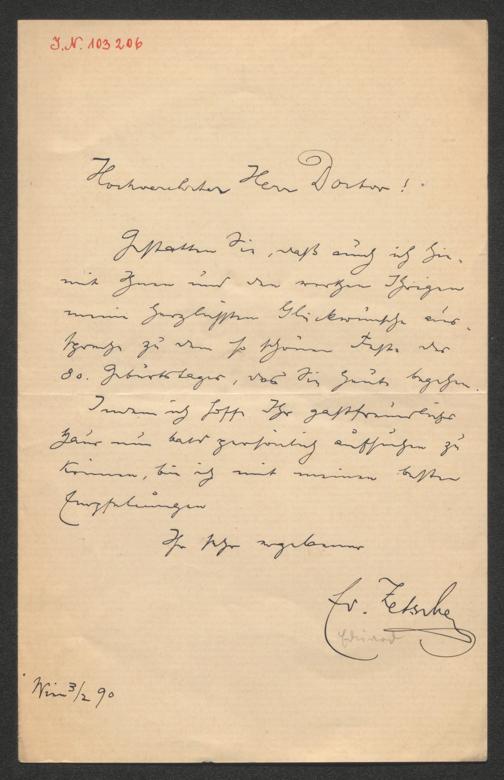 J. N. 103206
Hochverehrter Herr Doctor!
Gestatten Sie, daß auch ich hie-
mit Ihnen und den werthen Ihrigen
meine herzlichsten Glückwünsche aus-
spreche zu dem so schönen Feste des
80. Geburtstages, das Sie heute begehen.
Indem ich hoffe Ihr gastfreundliches
Haus nun bald persönlich aufsuchen zu
können, bin ich mit meinen besten
Empfehlungen
Ihr sehr ergebener
Ed. Zetsche
Eduard
Wien 3/2 90